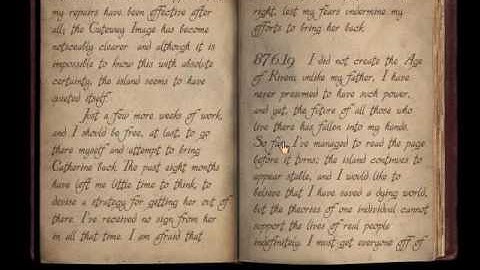 my repairs have been effective after
all; the Gateway Image has become
noticeably clearer and although it is
impossible to know this with absolute
certainty, the island seems to have
quieted itself.
Just a few more weeks of work,
and I should be free, at last, to go
there myself and attempt to bring
Catherine back. The past eight months
have left me little time to think, to
devise a strategy for getting her out of
there. I've received no sign from her
in all that time. I am afraid that
right, lest my fears undermine my
efforts to bring her back.
87.6.19 I did not create the Age
of Riven; unlike my father, I have
never presumed to have such power,
and yet, the future of all those who
live there has fallen into my hands.
So far, I've managed to read the page
before it turns; the island continues to
appear stable, and I would like to
believe that I have saved a dying world,
but the theories of one individual cannot
support the lives of real people
indefinitely. I must get everyone off of